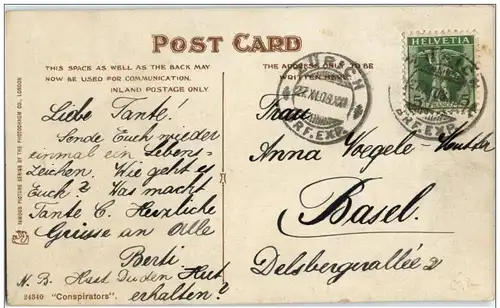 POST CARD
THIS SPACE AS WELL AS THE BACK MAY
NOW BE USED FOR COMMUNICATION.
INLAND POSTAGE ONLY.
THE ADDRESS ONLY TO BE
WRITTEN HERE.
HELVETIA
ZÜRICH
27.XI.09
BRF.EXP.
Liebe Tante!
Sende Euch wieder
einmal ein Lebens-
zeichen. Wie geht es
Euch? Was macht
Tante C. Herzliche
Grüsse an Alle
Berti
N. B. Hast Du den Hut
erhalten?
Frau
Anna Voegele-
Basel.
Delsbergerallee 2
FAMOUS PICTURE SERIES BY THE PHOTOCHROM CO., LONDON
24540 "Conspirators".